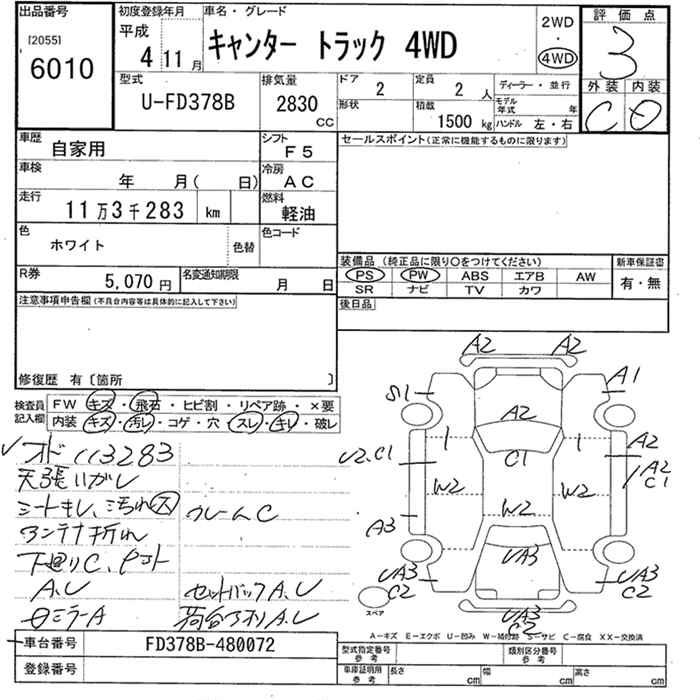 出品番号
[2055]
6010
初度登録年月
平成
4 11月
車名・グレード
キャンター トラック 4WD
2WD
・
4WD
評価点
3
外装 内装
C D
型式
U-FD378B
排気量
2830 CC
ドア
2
形状
定員
2 人
積載
1500 kg
ディーラー・並行
モデル年式 年
ハンドル 左・右
車歴
自家用
シフト
F5
車検
年 月( 日)
冷房
AC
走行
11万3千283 km
燃料
軽油
色
ホワイト
色替
色コード
R券
5,070円
名変通知期限
月 日
セールスポイント(正常に機能するものに限ります)
装備品(純正品に限り○をつけてください)
PS PW ABS エアB AW
SR ナビ TV カワ
新車保証書
有・無
後日品
注意事項申告欄(不具合内容等は具体的に記入して下さい)
修復歴 有〔箇所 〕
検査員記入欄
FW キズ・飛石・ヒビ割・リペア跡・×要
内装 キズ・汚レ・コゲ・穴・スレ・キレ・破レ
オド 113283
天張いがし
シートキレ、汚れ ス
アンテナ折れ
下廻りC、ヒット
A.U
フレームC
セットバックA.U
荷台アオリA.U
Dミラー A
A2 A2
S1 A1
A2
U2.C1 C1 A2
A2
C1
W2 W2 W2
A3
UA3
UA3
C2
UA3
C2
UA3
C2
スペア
A-キズ E-エクボ U-凹み W-補修跡 S-サビ C-腐食 XX-交換済
車台番号
FD378B-480072
登録番号
型式指定番号
参考
類別区分番号
参考
車庫証明用
参考
長さ cm
幅 cm
高さ cm